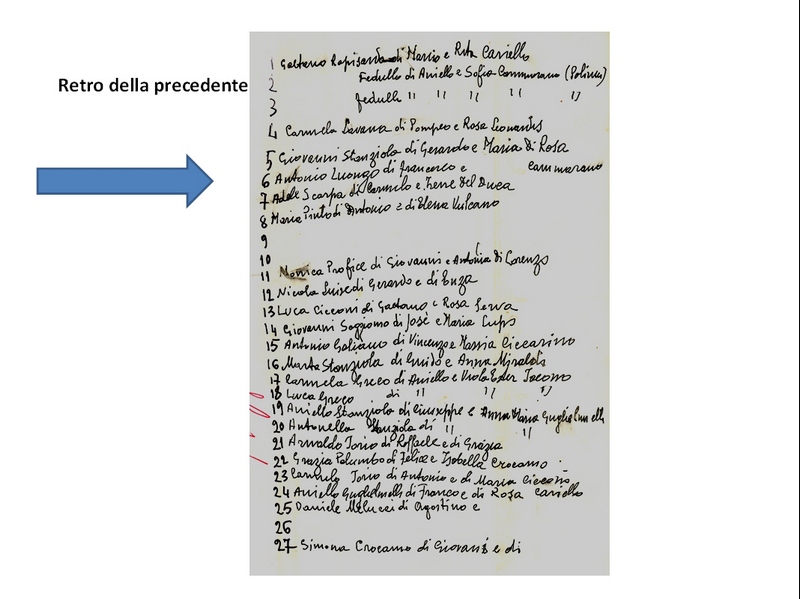 Retro della precedente
1 Gaetano Rapisarda di Mario e Rita Cariello
2 Fedullo di Aniello e Sofia Cammarano (Polina)
3 fedullo " " " " "
4 Carmela Lavana di Pompeo e Rosa Leonardis
5 Giovanni Stanziola di Gerardo e Maria di Rosa
6 Antonio Luongo di francesco e cammarano
7 Adele Scarpa di Carmelo e Irene Del Duca
8 Maria Pinto di Antonio e di Elena Vulcano
9
10
11 Monica Profice di Giovanni e Antonia Di Lorenzo
12 Nicola di Gerardo e di Enza
13 Luca Cicconi di Gaetano e Rosa Serva
14 Giovanni di Josè e Maria
15 Antonio Galiano di Vincenzo e Maria Ciccarino
16 Marta Stanziola di Guido e Anna
17 Carmela Greco di Aniello e Viola Ester
18 Luca Greco di " " "
19 Aniello Stanziola di Giuseppe e Anna Maria Guglielmelli
20 Antonella Stanziola di " "
21 Arnaldo Iorio di Raffaele e di Grazia
22 Grazia Palumbo di Felice e Isabella Crocamo
23 Carmelo Iorio di Antonio e di Maria
24 Aniello Guglielmelli di Franco e di Rosa Cariello
25 Daniele Melucci di Agostino e
26
27 Simona Crocamo di Giovanni e di